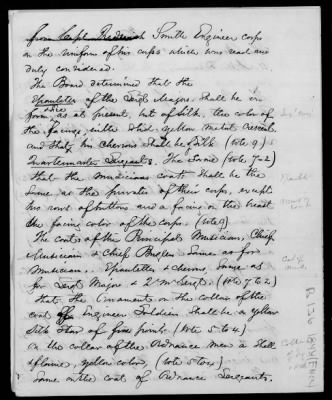 from Capt. Frederick Smith Engineer corps
on the uniform of his corps which was read and
duly considered.
The Board determined that the
Epaulettes of the Sergt Majors shall be in
form, size as at present, but of silk, the color of
the facings, with solid yellow metal crescent,
and that his chevrons shall be of silk (vote 9)
Quartermaster Sergeants. The same (vote 7 to 2)
that the musicians coats shall be the
same as the privates of their corps, except
his rows of buttons and a facing on the breast
the facing color of the corps. (vote 9)
The coats of the Principal Musicians, Chief
Musician & Chief Buglers same as for
Musicians. Epaulettes & chevrons, same as
for Sergt Majors & Qr Mr Sergt. (vote 7 to 2)
that the ornament on the collar of the
coat of Engineer Soldiers shall be a yellow
silk star of five points (vote 5 to 4)
on the collar of the Ordnance men a shell
& flame, yellow color, (vote 5 to 4)
Same on the coat of Ordnance Sergeants.